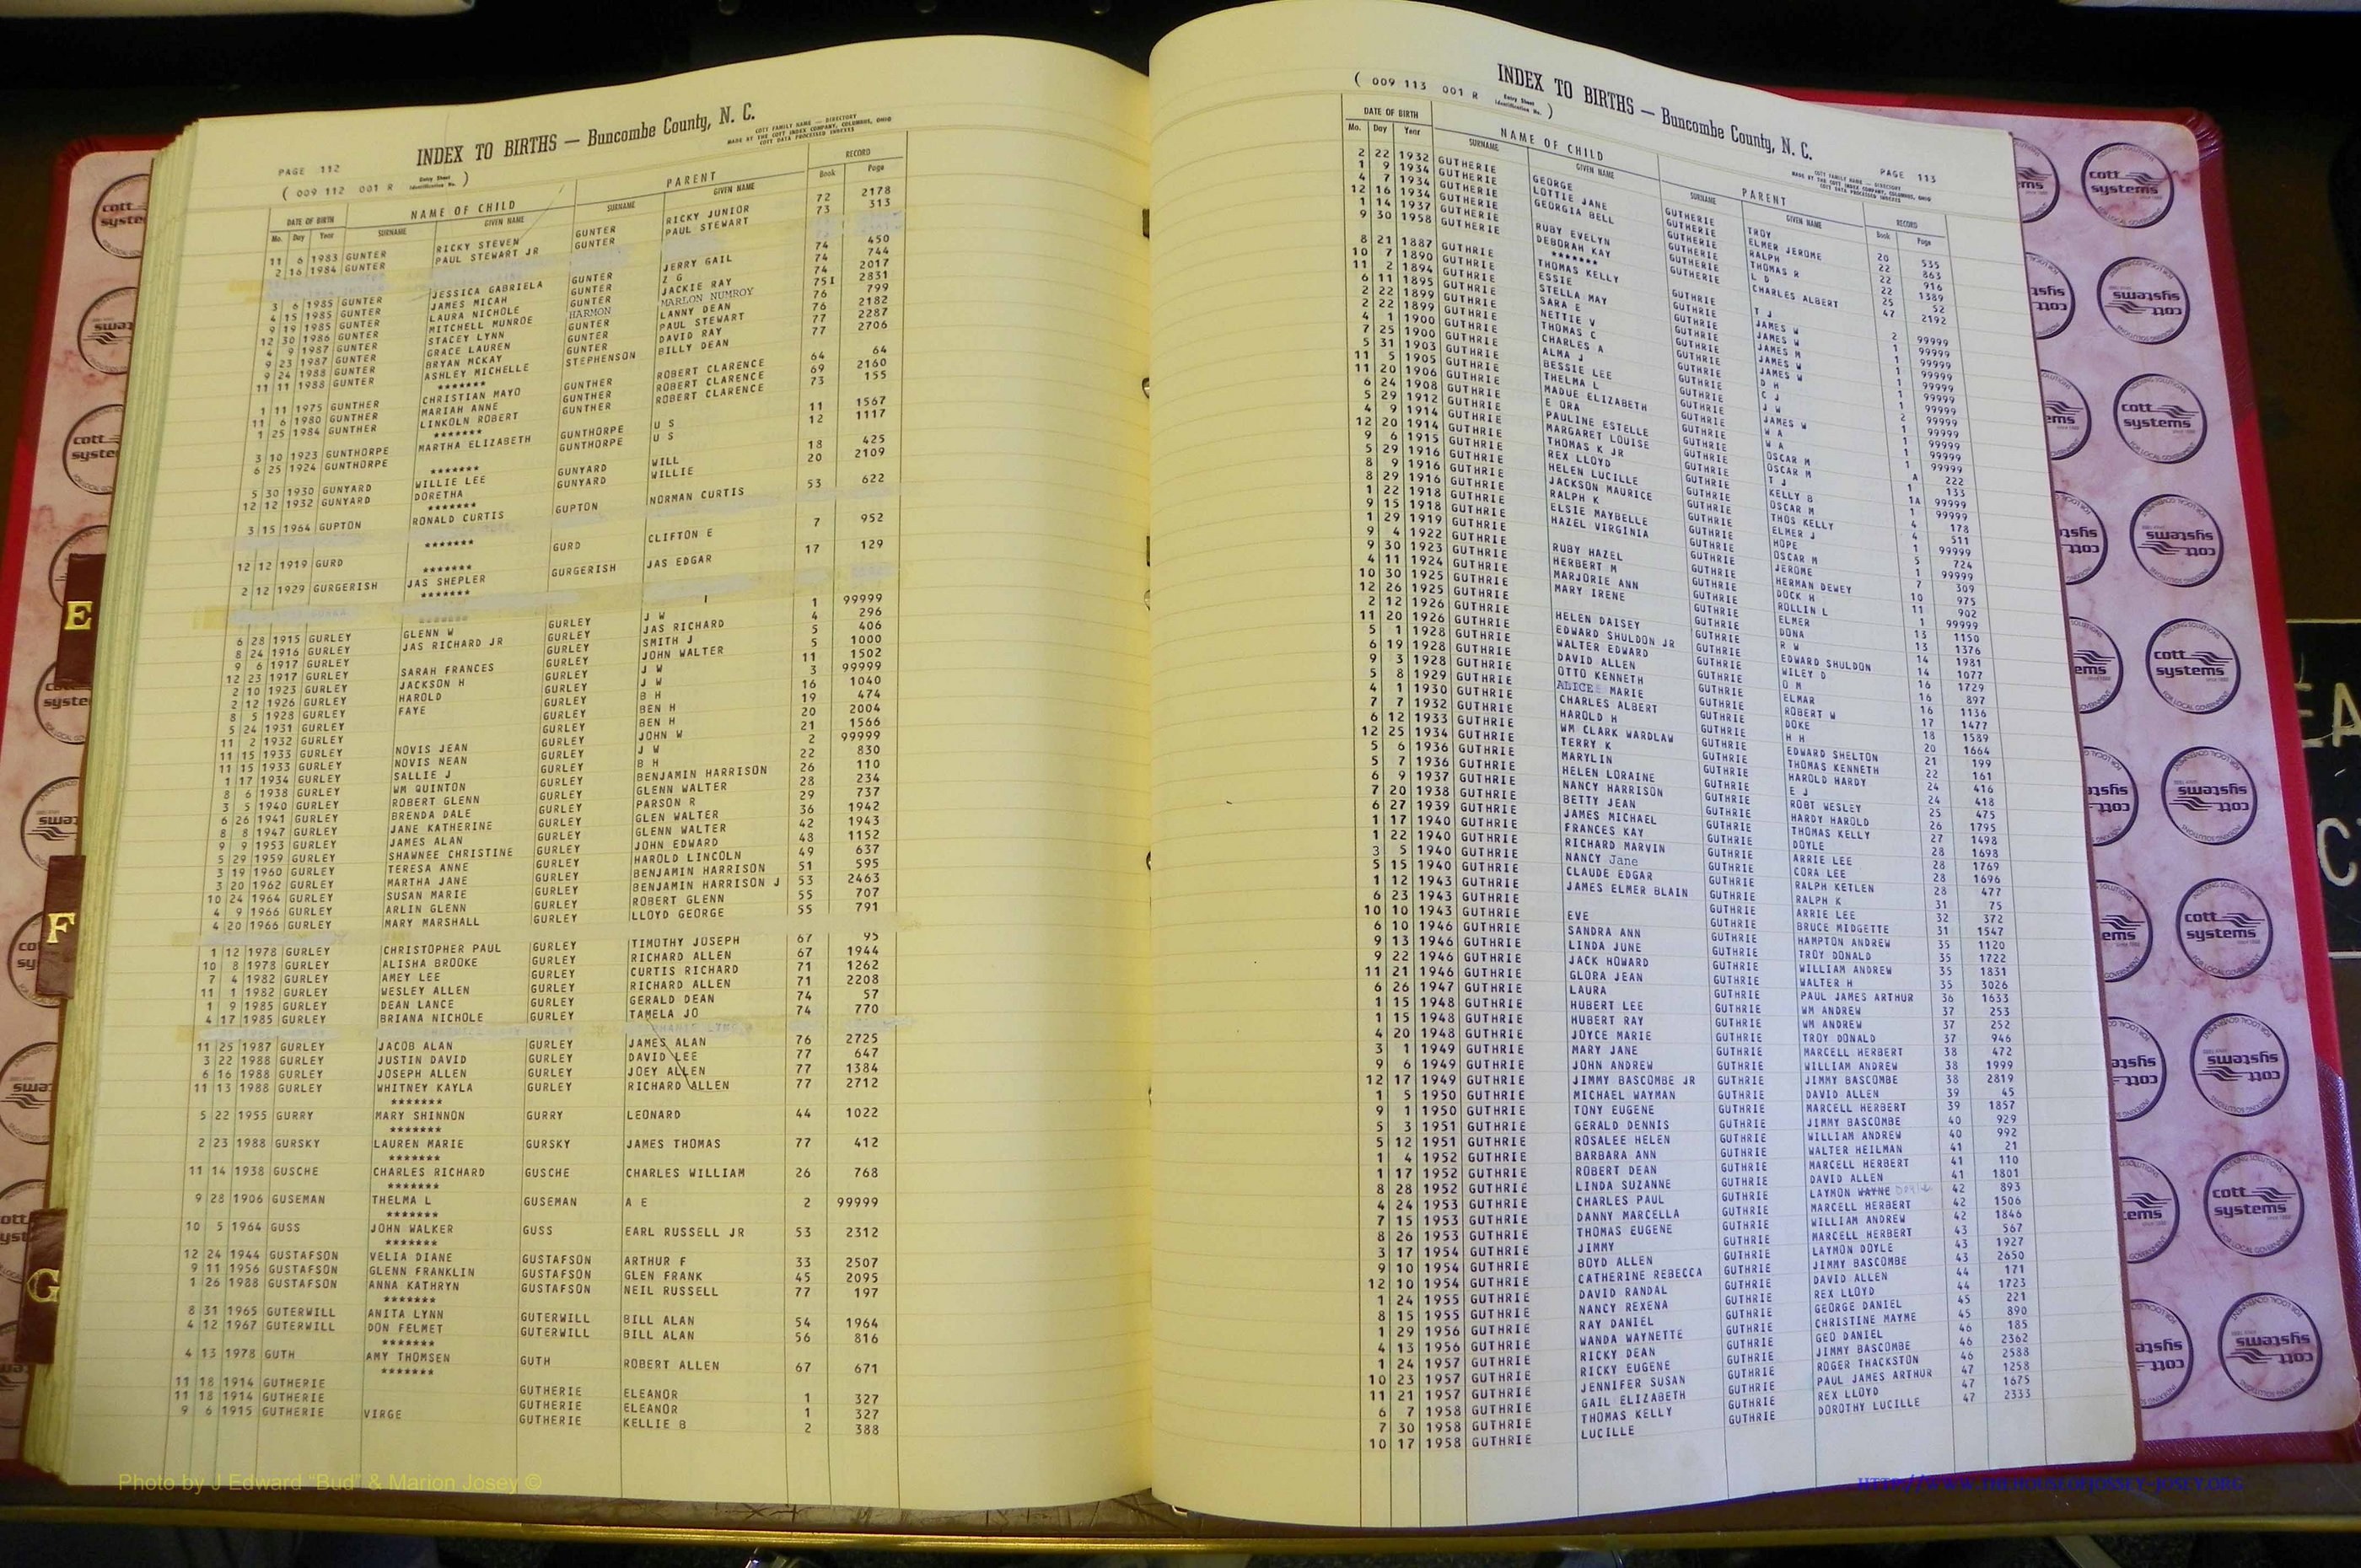 PAGE 112
INDEX TO BIRTHS — Buncombe County, N. C.
COTT FAMILY NAME — DIRECTORY
MADE BY THE COTT INDEX COMPANY, COLUMBUS, OHIO
COTT DATA PROCESSED INDEXES
( 009 112 001 R Entry Sheet Identification No. )
DATE OF BIRTH NAME OF CHILD PARENT RECORD
Mo. Day Year SURNAME GIVEN NAME SURNAME GIVEN NAME Book Page
11 6 1983 GUNTER RICKY STEVEN GUNTER RICKY JUNIOR 72 2178
2 16 1984 GUNTER PAUL STEWART JR GUNTER PAUL STEWART 73 313
3 6 1985 GUNTER JESSICA GABRIELA GUNTER JERRY GAIL 74 450
4 15 1985 GUNTER JAMES MICAH GUNTER Z G 74 744
9 19 1985 GUNTER LAURA NICHOLE GUNTER JACKIE RAY 74 2017
12 30 1986 GUNTER MITCHELL MUNROE HARMON MARLON NUMROY 75I 2831
4 9 1987 GUNTER STACEY LYNN GUNTER LANNY DEAN 76 799
9 23 1987 GUNTER GRACE LAUREN GUNTER PAUL STEWART 76 2182
9 24 1988 GUNTER BRYAN MCKAY GUNTER DAVID RAY 77 2287
11 11 1988 GUNTER ASHLEY MICHELLE STEPHENSON BILLY DEAN 77 2706
*******
1 11 1975 GUNTHER CHRISTIAN MAYO GUNTHER ROBERT CLARENCE 64 64
11 6 1980 GUNTHER MARIAH ANNE GUNTHER ROBERT CLARENCE 69 2160
1 25 1984 GUNTHER LINKOLN ROBERT GUNTHER ROBERT CLARENCE 73 155
*******
3 10 1923 GUNTHORPE MARTHA ELIZABETH GUNTHORPE U S 11 1567
6 25 1924 GUNTHORPE GUNTHORPE U S 12 1117
*******
5 30 1930 GUNYARD WILLIE LEE GUNYARD WILL 18 425
12 12 1932 GUNYARD DORETHA GUNYARD WILLIE 20 2109
*******
3 15 1964 GUPTON RONALD CURTIS GUPTON NORMAN CURTIS 53 622
*******
12 12 1919 GURD GURD CLIFTON E 7 952
*******
2 12 1929 GURGERISH JAS SHEPLER GURGERISH JAS EDGAR 17 129
*******
6 28 1915 GURLEY GLENN W GURLEY J W 1 99999
8 24 1916 GURLEY JAS RICHARD JR GURLEY JAS RICHARD 4 296
9 6 1917 GURLEY GURLEY SMITH J 5 406
12 23 1917 GURLEY SARAH FRANCES GURLEY JOHN WALTER 5 1000
2 10 1923 GURLEY JACKSON H GURLEY J W 11 1502
2 12 1926 GURLEY HAROLD GURLEY J W 3 99999
8 5 1928 GURLEY FAYE GURLEY B H 16 1040
5 24 1931 GURLEY GURLEY BEN H 19 474
11 2 1932 GURLEY GURLEY BEN H 20 2004
11 15 1933 GURLEY NOVIS JEAN GURLEY JOHN W 21 1566
11 15 1933 GURLEY NOVIS NEAN GURLEY J W 2 99999
1 17 1934 GURLEY SALLIE J GURLEY B H 22 830
8 6 1938 GURLEY WM QUINTON GURLEY BENJAMIN HARRISON 26 110
3 5 1940 GURLEY ROBERT GLENN GURLEY GLENN WALTER 28 234
6 26 1941 GURLEY BRENDA DALE GURLEY PARSON R 29 737
8 8 1947 GURLEY JANE KATHERINE GURLEY GLEN WALTER 36 1942
9 9 1953 GURLEY JAMES ALAN GURLEY GLENN WALTER 42 1943
5 29 1959 GURLEY SHAWNEE CHRISTINE GURLEY JOHN EDWARD 48 1152
3 19 1960 GURLEY TERESA ANNE GURLEY HAROLD LINCOLN 49 637
3 20 1962 GURLEY MARTHA JANE GURLEY BENJAMIN HARRISON 51 595
10 24 1964 GURLEY SUSAN MARIE GURLEY BENJAMIN HARRISON J 53 2463
4 9 1966 GURLEY ARLIN GLENN GURLEY ROBERT GLENN 55 707
4 20 1966 GURLEY MARY MARSHALL GURLEY LLOYD GEORGE 55 791
1 12 1978 GURLEY CHRISTOPHER PAUL GURLEY TIMOTHY JOSEPH 67 95
10 8 1978 GURLEY ALISHA BROOKE GURLEY RICHARD ALLEN 67 1944
7 4 1982 GURLEY AMEY LEE GURLEY CURTIS RICHARD 71 1262
11 1 1982 GURLEY WESLEY ALLEN GURLEY RICHARD ALLEN 71 2208
1 9 1985 GURLEY DEAN LANCE GURLEY GERALD DEAN 74 57
4 17 1985 GURLEY BRIANA NICHOLE GURLEY TAMELA JO 74 770
11 25 1987 GURLEY JACOB ALAN GURLEY JAMES ALAN 76 2725
3 22 1988 GURLEY JUSTIN DAVID GURLEY DAVID LEE 77 647
6 16 1988 GURLEY JOSEPH ALLEN GURLEY JOEY ALLEN 77 1384
11 13 1988 GURLEY WHITNEY KAYLA GURLEY RICHARD ALLEN 77 2712
*******
5 22 1955 GURRY MARY SHINNON GURRY LEONARD 44 1022
*******
2 23 1988 GURSKY LAUREN MARIE GURSKY JAMES THOMAS 77 412
*******
11 14 1938 GUSCHE CHARLES RICHARD GUSCHE CHARLES WILLIAM 26 768
*******
9 28 1906 GUSEMAN THELMA L GUSEMAN A E 2 99999
*******
10 5 1964 GUSS JOHN WALKER GUSS EARL RUSSELL JR 53 2312
*******
12 24 1944 GUSTAFSON VELIA DIANE GUSTAFSON ARTHUR F 33 2507
9 11 1956 GUSTAFSON GLENN FRANKLIN GUSTAFSON GLEN FRANK 45 2095
1 26 1988 GUSTAFSON ANNA KATHRYN GUSTAFSON NEIL RUSSELL 77 197
*******
8 31 1965 GUTERWILL ANITA LYNN GUTERWILL BILL ALAN 54 1964
4 12 1967 GUTERWILL DON FELMET GUTERWILL BILL ALAN 56 816
*******
4 13 1978 GUTH AMY THOMSEN GUTH ROBERT ALLEN 67 671
*******
11 18 1914 GUTHERIE GUTHERIE ELEANOR 1 327
11 18 1914 GUTHERIE GUTHERIE ELEANOR 1 327
9 6 1915 GUTHERIE VIRGE GUTHERIE KELLIE B 2 388
( 009 113 001 R Entry Sheet Identification No. )
INDEX TO BIRTHS — Buncombe County, N. C.
PAGE 113
COTT FAMILY NAME — DIRECTORY
MADE BY THE COTT INDEX COMPANY, COLUMBUS, OHIO
COTT DATA PROCESSED INDEXES
DATE OF BIRTH NAME OF CHILD PARENT RECORD
Mo. Day Year SURNAME GIVEN NAME SURNAME GIVEN NAME Book Page
2 22 1932 GUTHERIE GEORGE GUTHERIE TROY 20 535
1 9 1934 GUTHERIE LOTTIE JANE GUTHERIE ELMER JEROME 22 863
4 7 1934 GUTHERIE GEORGIA BELL GUTHERIE RALPH 22 916
12 16 1934 GUTHERIE GUTHERIE THOMAS R 22 1389
1 14 1937 GUTHERIE RUBY EVELYN GUTHERIE L D 25 52
9 30 1958 GUTHERIE DEBORAH KAY GUTHERIE CHARLES ALBERT 47 2192
*******
8 21 1887 GUTHRIE THOMAS KELLY GUTHRIE T J 2 99999
10 7 1890 GUTHRIE ESSIE GUTHRIE JAMES W 1 99999
11 2 1894 GUTHRIE STELLA MAY GUTHRIE JAMES W 1 99999
6 11 1895 GUTHRIE SARA E GUTHRIE JAMES M 1 99999
2 22 1899 GUTHRIE NETTIE V GUTHRIE JAMES W 1 99999
2 22 1899 GUTHRIE THOMAS C GUTHRIE JAMES W 1 99999
4 1 1900 GUTHRIE CHARLES A GUTHRIE D H 1 99999
7 25 1900 GUTHRIE ALMA J GUTHRIE C J 2 99999
5 31 1903 GUTHRIE BESSIE LEE GUTHRIE J W 1 99999
11 5 1905 GUTHRIE THELMA L GUTHRIE JAMES W 1 99999
11 20 1906 GUTHRIE MADUE ELIZABETH GUTHRIE W A 1 99999
6 24 1908 GUTHRIE E ORA GUTHRIE W A 1 99999
5 29 1912 GUTHRIE PAULINE ESTELLE GUTHRIE OSCAR M A 222
4 9 1914 GUTHRIE MARGARET LOUISE GUTHRIE OSCAR M 1 133
12 20 1914 GUTHRIE THOMAS K JR GUTHRIE T J 1A 99999
9 6 1915 GUTHRIE REX LLOYD GUTHRIE KELLY B 1 99999
5 29 1916 GUTHRIE HELEN LUCILLE GUTHRIE OSCAR M 4 178
8 9 1916 GUTHRIE JACKSON MAURICE GUTHRIE THOS KELLY 4 511
8 29 1916 GUTHRIE RALPH K GUTHRIE ELMER J 1 99999
1 22 1918 GUTHRIE ELSIE MAYBELLE GUTHRIE HOPE 5 724
9 15 1918 GUTHRIE HAZEL VIRGINIA GUTHRIE OSCAR M 1 99999
1 29 1919 GUTHRIE GUTHRIE JEROME 7 309
9 4 1922 GUTHRIE RUBY HAZEL GUTHRIE HERMAN DEWEY 10 975
9 30 1923 GUTHRIE HERBERT M GUTHRIE DOCK H 11 902
4 11 1924 GUTHRIE MARJORIE ANN GUTHRIE ROLLIN L 1 99999
10 30 1925 GUTHRIE MARY IRENE GUTHRIE ELMER 13 1150
12 26 1925 GUTHRIE GUTHRIE DONA 13 1376
2 12 1926 GUTHRIE HELEN DAISEY GUTHRIE R W 14 1981
11 20 1926 GUTHRIE EDWARD SHULDON JR GUTHRIE EDWARD SHULDON 14 1077
5 1 1928 GUTHRIE WALTER EDWARD GUTHRIE WILEY D 16 1729
6 19 1928 GUTHRIE DAVID ALLEN GUTHRIE O M 16 897
9 3 1928 GUTHRIE OTTO KENNETH GUTHRIE ELMAR 16 1136
5 8 1929 GUTHRIE ALICE MARIE GUTHRIE ROBERT W 17 1477
4 1 1930 GUTHRIE CHARLES ALBERT GUTHRIE DOKE 18 1589
7 7 1932 GUTHRIE HAROLD H GUTHRIE H H 20 1664
6 12 1933 GUTHRIE WM CLARK WARDLAW GUTHRIE EDWARD SHELTON 21 199
12 25 1934 GUTHRIE TERRY K GUTHRIE THOMAS KENNETH 22 161
5 6 1936 GUTHRIE MARYLIN GUTHRIE HAROLD HARDY 24 416
5 7 1936 GUTHRIE HELEN LORAINE GUTHRIE E J 24 418
6 9 1937 GUTHRIE NANCY HARRISON GUTHRIE ROBT WESLEY 25 475
7 20 1938 GUTHRIE BETTY JEAN GUTHRIE HARDY HAROLD 26 1795
6 27 1939 GUTHRIE JAMES MICHAEL GUTHRIE THOMAS KELLY 27 1498
1 17 1940 GUTHRIE FRANCES KAY GUTHRIE DOYLE 28 1698
1 22 1940 GUTHRIE RICHARD MARVIN GUTHRIE ARRIE LEE 28 1769
3 5 1940 GUTHRIE NANCY Jane GUTHRIE CORA LEE 28 1696
5 15 1940 GUTHRIE CLAUDE EDGAR GUTHRIE RALPH KETLEN 28 477
1 12 1943 GUTHRIE JAMES ELMER BLAIN GUTHRIE RALPH K 31 75
6 23 1943 GUTHRIE GUTHRIE ARRIE LEE 32 372
10 10 1943 GUTHRIE EVE GUTHRIE BRUCE MIDGETTE 31 1547
6 10 1946 GUTHRIE SANDRA ANN GUTHRIE HAMPTON ANDREW 35 1120
9 13 1946 GUTHRIE LINDA JUNE GUTHRIE TROY DONALD 35 1722
9 22 1946 GUTHRIE JACK HOWARD GUTHRIE WILLIAM ANDREW 35 1831
11 21 1946 GUTHRIE GLORA JEAN GUTHRIE WALTER H 35 3026
6 26 1947 GUTHRIE LAURA GUTHRIE PAUL JAMES ARTHUR 36 1633
1 15 1948 GUTHRIE HUBERT LEE GUTHRIE WM ANDREW 37 253
1 15 1948 GUTHRIE HUBERT RAY GUTHRIE WM ANDREW 37 252
4 20 1948 GUTHRIE JOYCE MARIE GUTHRIE TROY DONALD 37 946
3 1 1949 GUTHRIE MARY JANE GUTHRIE MARCELL HERBERT 38 472
9 6 1949 GUTHRIE JOHN ANDREW GUTHRIE WILLIAM ANDREW 38 1999
12 17 1949 GUTHRIE JIMMY BASCOMBE JR GUTHRIE JIMMY BASCOMBE 38 2819
1 5 1950 GUTHRIE MICHAEL WAYMAN GUTHRIE DAVID ALLEN 39 45
9 1 1950 GUTHRIE TONY EUGENE GUTHRIE MARCELL HERBERT 39 1857
5 3 1951 GUTHRIE GERALD DENNIS GUTHRIE JIMMY BASCOMBE 40 929
5 12 1951 GUTHRIE ROSALEE HELEN GUTHRIE WILLIAM ANDREW 40 992
1 4 1952 GUTHRIE BARBARA ANN GUTHRIE WALTER HEILMAN 41 21
1 17 1952 GUTHRIE ROBERT DEAN GUTHRIE MARCELL HERBERT 41 110
8 28 1952 GUTHRIE LINDA SUZANNE GUTHRIE DAVID ALLEN 41 1801
4 24 1953 GUTHRIE CHARLES PAUL GUTHRIE LAYMON WAYNE 42 893
7 15 1953 GUTHRIE DANNY MARCELLA GUTHRIE MARCELL HERBERT 42 1506
8 26 1953 GUTHRIE THOMAS EUGENE GUTHRIE WILLIAM ANDREW 42 1846
3 17 1954 GUTHRIE JIMMY GUTHRIE MARCELL HERBERT 43 567
9 10 1954 GUTHRIE BOYD ALLEN GUTHRIE LAYMON DOYLE 43 1927
12 10 1954 GUTHRIE CATHERINE REBECCA GUTHRIE JIMMY BASCOMBE 43 2650
1 24 1955 GUTHRIE DAVID RANDAL GUTHRIE DAVID ALLEN 44 171
8 15 1955 GUTHRIE NANCY REXENA GUTHRIE REX LLOYD 44 1723
1 29 1956 GUTHRIE RAY DANIEL GUTHRIE GEORGE DANIEL 45 221
4 13 1956 GUTHRIE WANDA WAYNETTE GUTHRIE CHRISTINE MAYME 45 890
1 24 1957 GUTHRIE RICKY DEAN GUTHRIE GEO DANIEL 46 185
10 23 1957 GUTHRIE RICKY EUGENE GUTHRIE JIMMY BASCOMBE 46 2362
11 21 1957 GUTHRIE JENNIFER SUSAN GUTHRIE ROGER THACKSTON 46 2588
6 7 1958 GUTHRIE GAIL ELIZABETH GUTHRIE PAUL JAMES ARTHUR 47 1258
7 30 1958 GUTHRIE THOMAS KELLY GUTHRIE REX LLOYD 47 1675
10 17 1958 GUTHRIE LUCILLE GUTHRIE DOROTHY LUCILLE 47 2333
E
F
G
cott systems
Photo by J Edward "Bud" & Marion Josey ©
HTTP://WWW.THEHOUSEOFJOSSEY-JOSEY.ORG